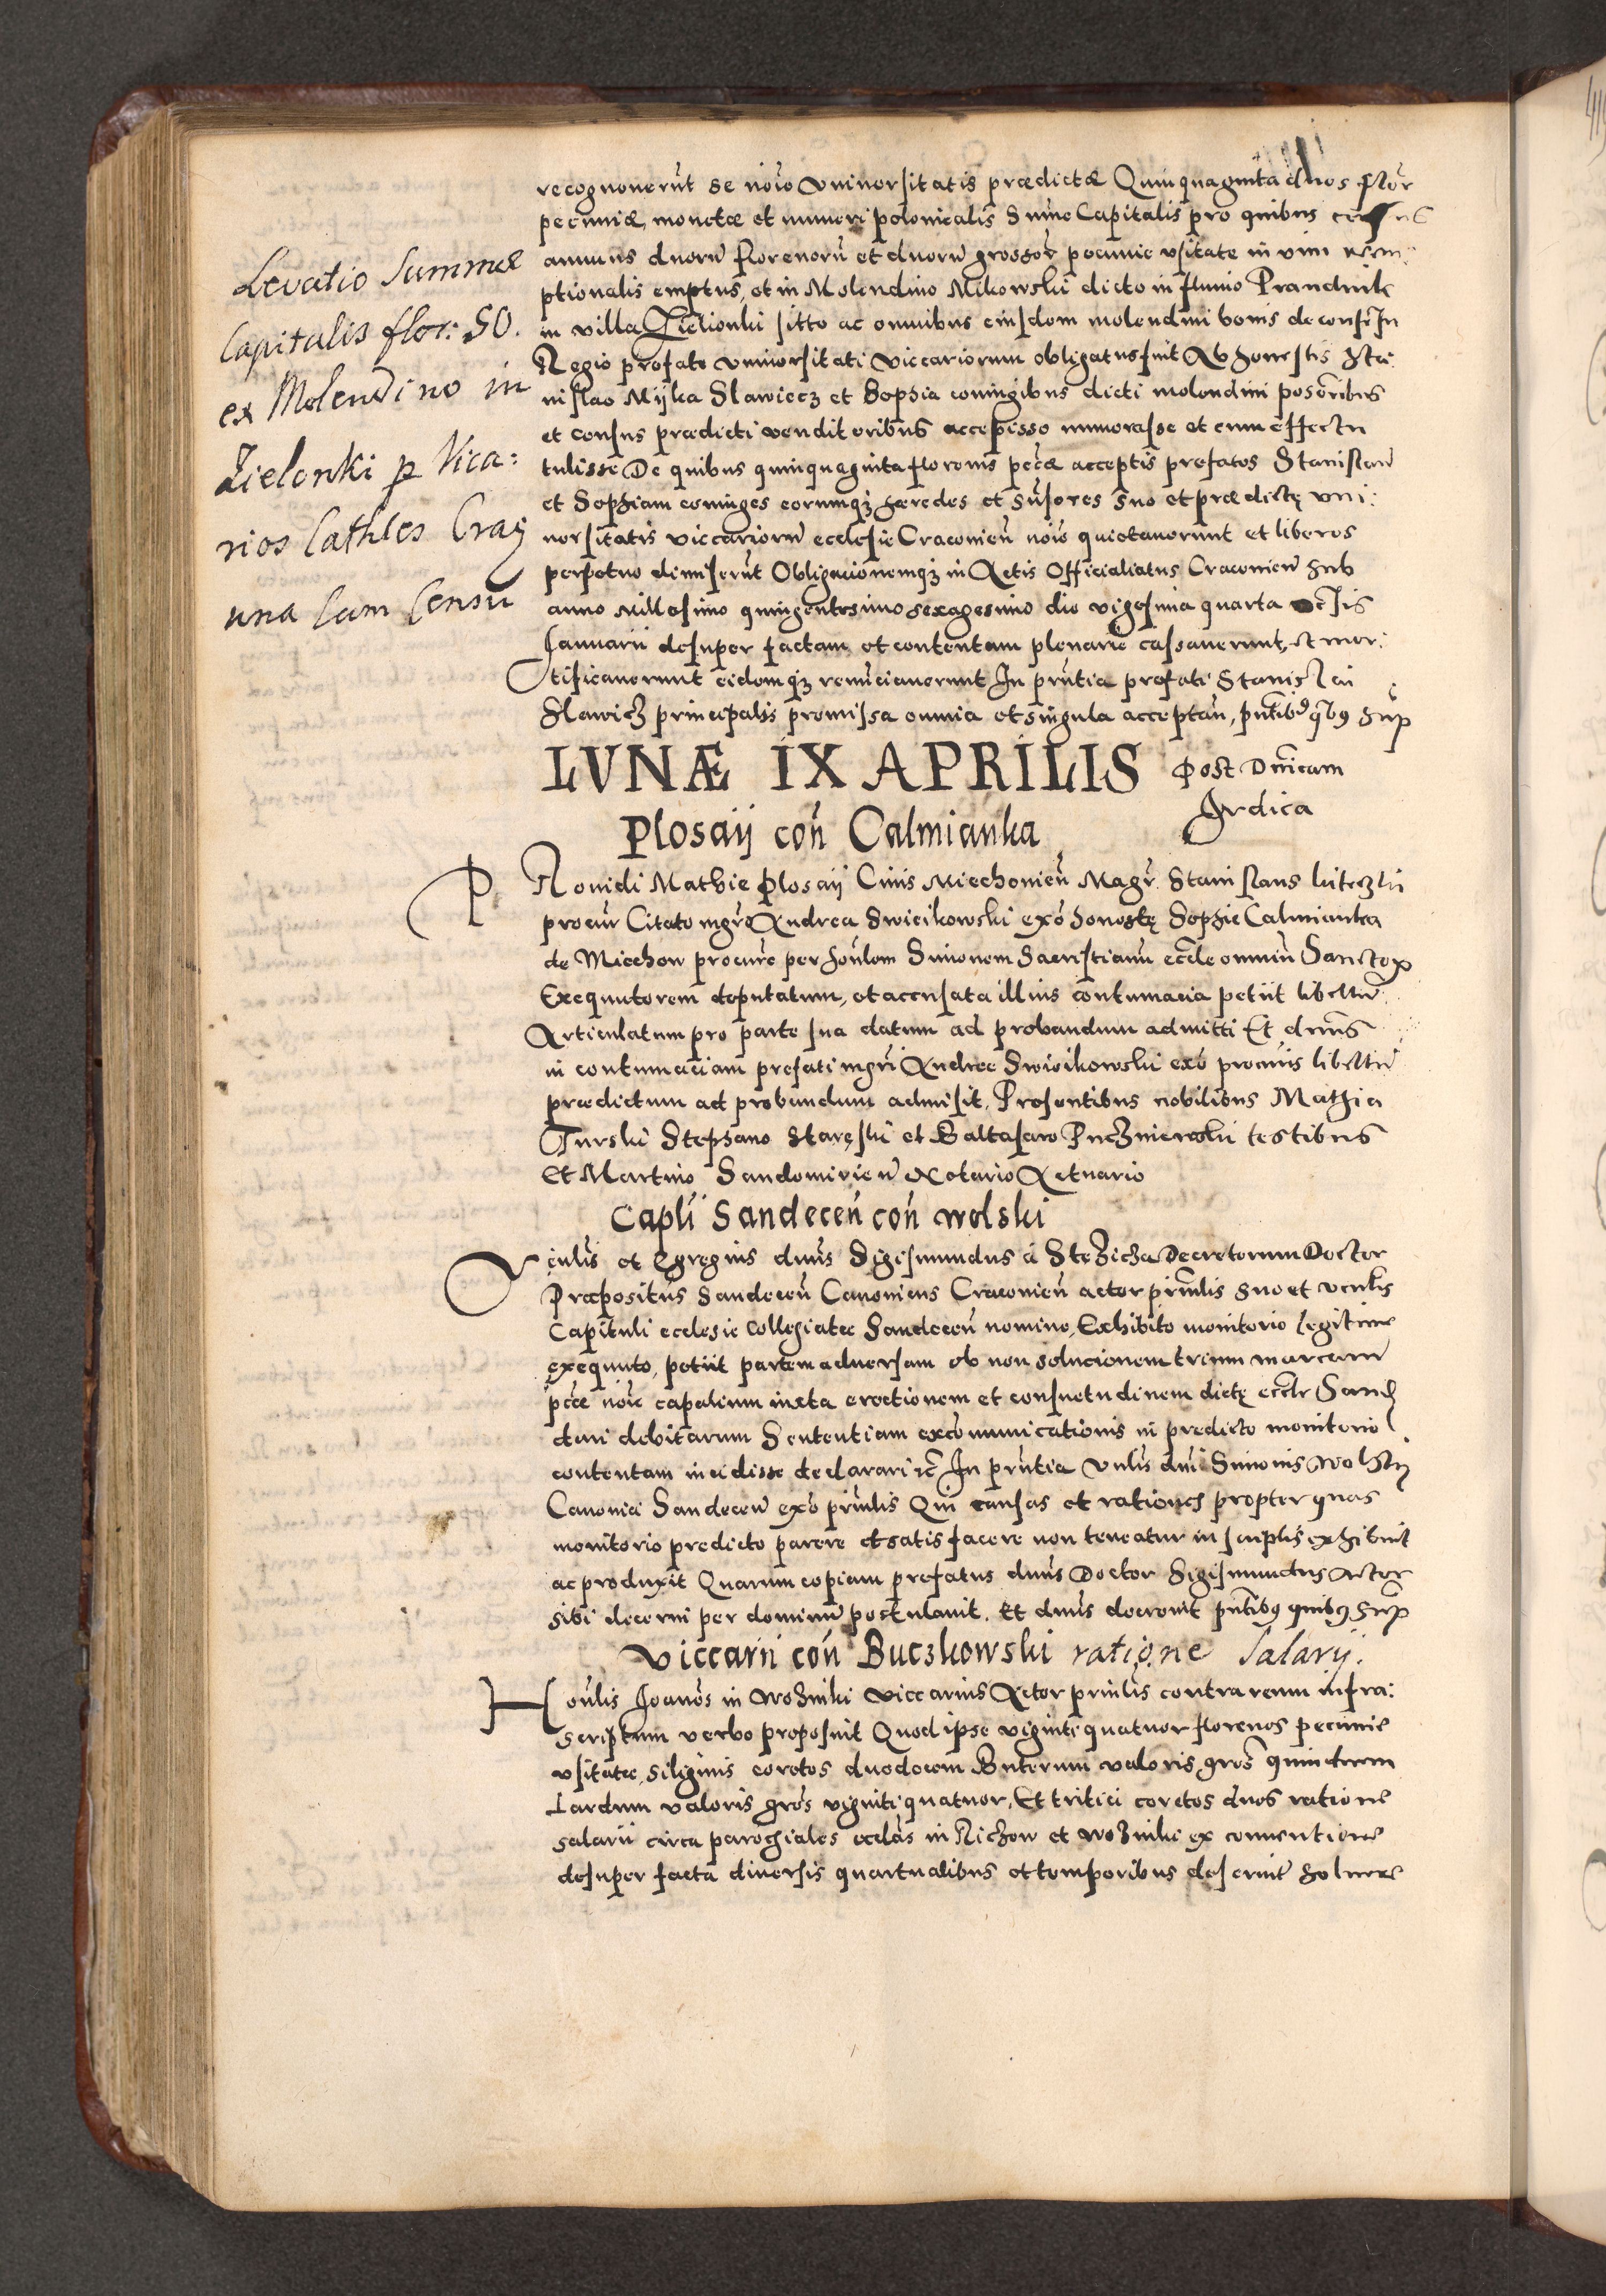 recognouerūt se noīe Vniuersitatis prædictæ Quinquaginta duos flor
pecuniæ, monetæ et numeri polonicalis Sūme Capitalis pro quibus census
annuus duorū florenorū et duorū grossor pecunie vsitate in vim reem
ptionalis emptus, et in Molendino Mikowski dicto in fluuio Prandnik
in villa Zielionki sitto ac omnibus eiusdem molendini bonis de consēsu
Regio prefate vniuersitati viccariorum obligatus fuit Ab honestis Sta:
nislao Myka Slawiecz et Sophia coniugibus dicti molendini posōribus
et census prædicti venditoribus accepisse numerasse et cum effectu
tulisse De quibus quinquaginta florenis pecæ acceptis prefatos Stanislau
et Sophiam coniuges eorumqʒ heredes et sūsores suo et prædictę vni:
uersitatis viccariorū ecclesie Cracouien noīe quietauerunt et liberos
perpetuo dimiserūt Obligacionemqʒ in Actis Officialiatus Cracouien sub
anno millesimo quingentesimo sexagesimo die vigesima quarta mēsis
Januarii desuper factam et contentam plenarie cassauerunt, et mor:
tificauerunt eidemqʒ renūciauerunt In prn̄tia prefati Stanislai
Slawicz principalis premissa omnia et singula acceptan, pn̄tibꝰ qbꝰ sup
Levatio Summæ
Capitalis flor: 50.
ex Molendino in
Zielonki p Vica:
rios Cathles Crac
una cum Censu
LVNÆ IX APRILIS post Dn̄icam
Iudica
Plosaij con̄ Calmianka
Prouidi Mathie Plosaij Ciuis Miechouien Magr Stanislaus luteczki
procur Citato mgro Andrea Swieikowski exō honestę Sophie Calmianka
de Miechow procure per honlem Simonem Sacristianū ecclē omniū Sanctor
Exequutorem deputatum, et accusata illius contumacia petiit libellū
Articulatum pro parte sua datum ad probandum admitti Et dnūs
in contumaciam prefati mgri Andree Swieikowski exō procuris libellū
prædictum ad probandum admisit. Presentibus nobilibus Mathia
Turski Stephano Staręski et Baltasaro Puczniewski testibus
Et Martino Sandomirien Notario Actuario
Capli Sandecen con̄ wolski
Vēnlis et Egregius dnūs Sigismundus a Stezicza Decretorum Doctor
Præpositus Sandecen Canonicus Cracouien actor prīnlis suo et venlis
Capituli ecclesie Collegiatæ Sandecen nomine, Exhibito monitorio legittime
exequuto, petiit partem aduersam ob non solucionem trium marcarū
pecæ noīe capalium iuxta erectionem et consuetudinem dictę ecclē Sand
dari debitarum Sententiam excōmunicationis in predicto monitorio
contentam incidisse declarari ec̄ In prn̄tia Vnlis dni Simonis wolsky
Canonici Sandecen exō prīnlis Qui causas et rationes propter quas
monitorio predicto parere et satis facere non teneatur in scriptis exhibuit
ac produxit Quarum copiam prefatus dnūs Doctor Sigismundus Actor
sibi decerni per dominū postulauit. Et dnūs decreuit pn̄tibꝰ quibꝰ sup
Viccarii con̄ Buczkowski ratione Salarij.
Honlis Joannes in wozniki viccarius Actor prīnlis contra reum infra:
scriptum verbo proposuit Quod ipse viginti quatuor florenos pecunie
vsitatæ, siliginis coretos duodecem Buterum valoris gros quindecem
Lardum valoris gros viginti quatuor, Et tritici coretos duos ratione
salarii circa parochiales ecclas in Richow et wozniki ex conuentione
desuper facta diuersis quartualibus et temporibus deseruit soluere